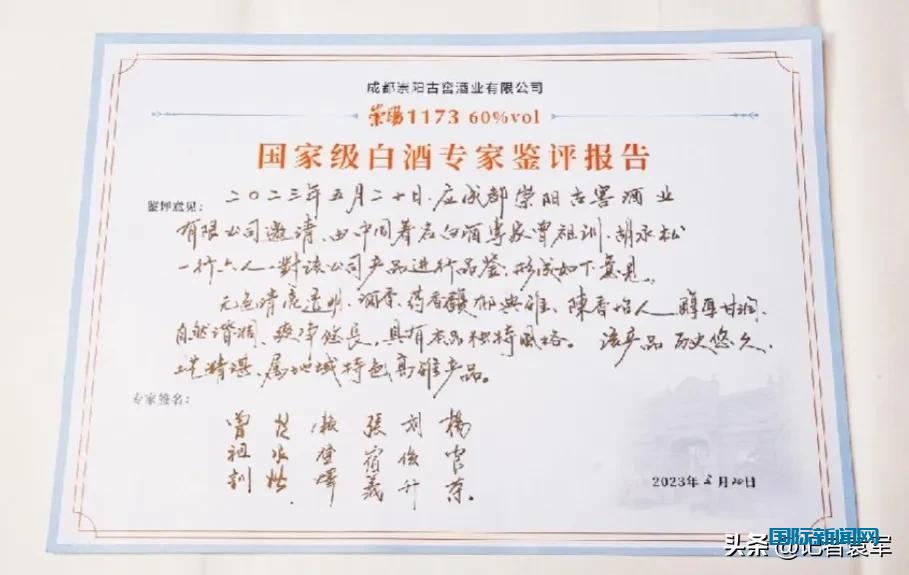 成都崇阳古窖酒业有限公司
崇陽1173 60%vol
国家级白酒专家鉴评报告
鉴评意见: 二〇二三年五月二十日、应成都崇阳古窖酒业
有限公司邀请、由中国著名白酒专家曾祖训、胡永松
一行六人、对该公司产品进行品鉴、形成如下意见。
无色清亮透明、酒香、药香馥郁典雅、陳香怡人、醇厚甘润、
自然谐调、爽净悠长、具有本品独特风格。该产品历史悠久、
工艺精湛、属地域特色高雅产品。
专家签名:
曾祖训
張宿義
刘俊升
杨官荣
2023年5月20日
国际新闻网
头条 @记者袁军